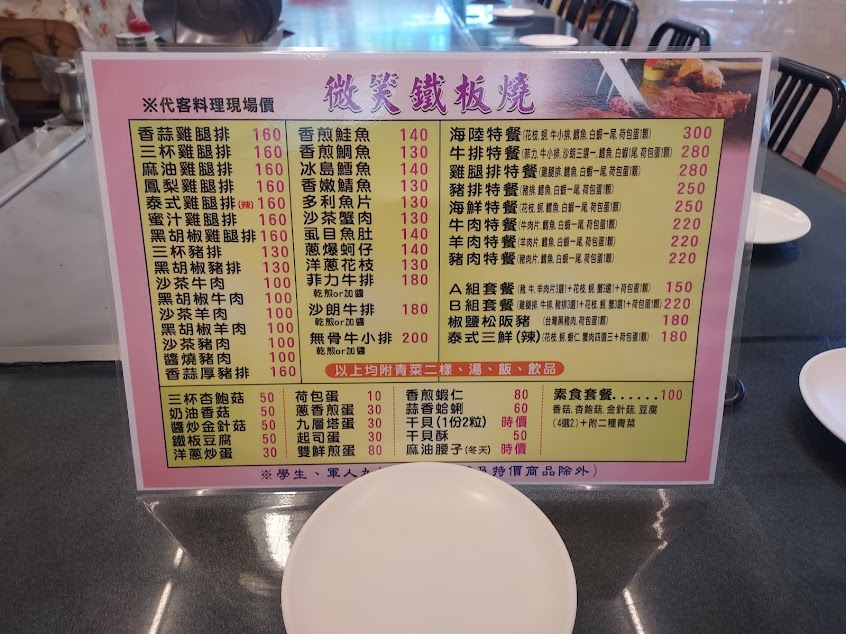 微笑鐵板燒
※代客料理現場價
香蒜雞腿排 160
三杯雞腿排 160
麻油雞腿排 160
鳳梨雞腿排 160
泰式雞腿排(辣) 160
蜜汁雞腿排 160
黑胡椒雞腿排 160
三杯豬排 130
黑胡椒豬排 130
沙茶牛肉 100
黑胡椒牛肉 100
沙茶羊肉 100
黑胡椒羊肉 100
沙茶豬肉 100
醬燒豬肉 100
香蒜厚豬排 160
香煎鮭魚 140
香煎鯛魚 130
冰島鱈魚 140
香嫩鯖魚 130
多利魚片 130
沙茶蟹肉 130
虱目魚肚 140
蔥爆蚵仔 140
洋蔥花枝 130
菲力牛排 180
乾煎or加醬
沙朗牛排 180
乾煎or加醬
無骨牛小排 200
乾煎or加醬
海陸特餐(花枝, 蚵, 牛小排, 鱈魚, 白蝦一尾, 荷包蛋1顆) 300
牛排特餐(菲力, 牛小排, 沙朗三選一, 鱈魚, 白蝦1尾, 荷包蛋1顆) 280
雞腿排特餐(雞腿排, 鱈魚, 白蝦一尾, 荷包蛋1顆) 280
豬排特餐(豬排, 鱈魚, 白蝦一尾, 荷包蛋1顆) 250
海鮮特餐(花枝, 蚵, 鱈魚, 白蝦一尾, 荷包蛋1顆) 250
牛肉特餐(牛肉片, 鱈魚, 白蝦一尾, 荷包蛋1顆) 220
羊肉特餐(羊肉片, 鱈魚, 白蝦一尾, 荷包蛋1顆) 220
豬肉特餐(豬肉片, 鱈魚, 白蝦一尾, 荷包蛋1顆) 220
A組套餐(豬, 牛, 羊肉片3選1+花枝, 蚵, 蟹3選1+荷包蛋1顆) 150
B組套餐(雞腿排, 牛排, 豬排3選1+花枝, 蚵, 蟹3選1+荷包蛋1顆) 220
椒鹽松阪豬 (台灣黑豬肉, 荷包蛋1顆) 180
泰式三鮮(辣) (花枝, 蚵, 蝦仁, 蟹肉四選三+荷包蛋1顆) 180
以上均附青菜二樣、湯、飯、飲品
三杯杏鮑菇 50
奶油香菇 50
醬炒金針菇 50
鐵板豆腐 50
洋蔥炒蛋 30
荷包蛋 10
蔥香煎蛋 30
九層塔蛋 30
起司蛋 30
雙鮮煎蛋 80
香煎蝦仁 80
蒜香蛤蜊 60
干貝(1份2粒) 時價
干貝酥 50
麻油腰子(冬天) 時價
素食套餐......100
香菇, 杏鮑菇, 金針菇, 豆腐
(4選2)+附二種青菜
※學生、軍人九 及特價商品除外)